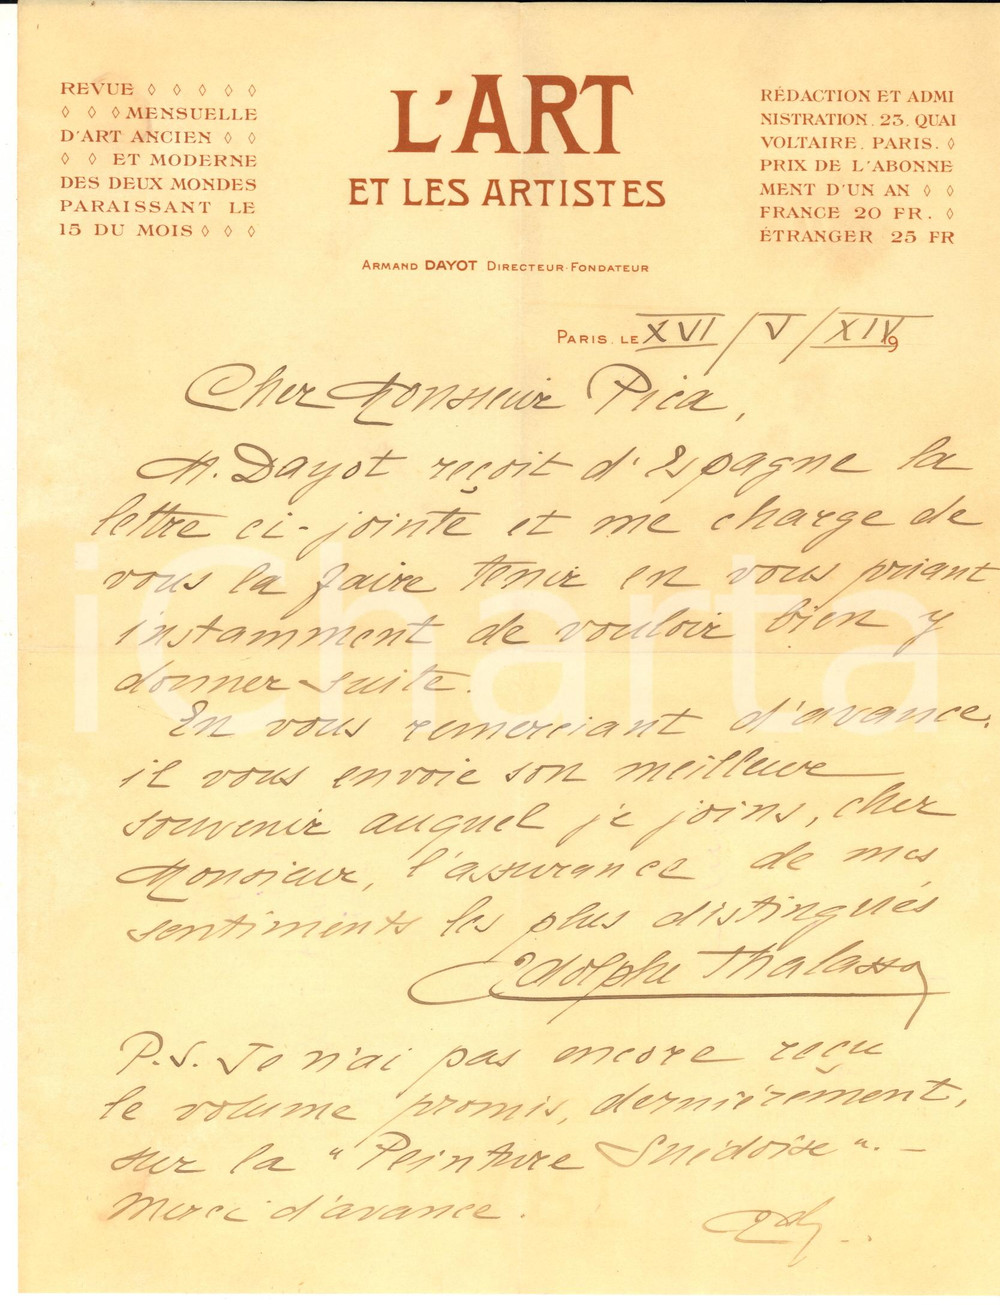 REVUE ◊ ◊ ◊ ◊ ◊
◊ ◊ ◊ MENSUELLE
D'ART ANCIEN ◊ ◊
◊ ◊ ET MODERNE
DES DEUX MONDES
PARAISSANT LE
15 DU MOIS ◊ ◊ ◊
L'ART
ET LES ARTISTES
ARMAND DAYOT DIRECTEUR-FONDATEUR
RÉDACTION ET ADMI
NISTRATION. 23. QUAI
VOLTAIRE. PARIS. ◊
PRIX DE L'ABONNE
MENT D'UN AN ◊ ◊
FRANCE 20 FR. ◊
ÉTRANGER 25 FR
PARIS. LE XVI / V / XIV 9
Cher Monsieur Pica,
M. Dayot reçoit d'Espagne la
lettre ci-jointe et me charge de
vous la faire tenir en vous priant
instamment de vouloir bien y
donner suite.
En vous remerciant d'avance,
il vous envoie son meilleure
souvenir auquel je joins, cher
Monsieur, l'assurance de mes
sentiments les plus distingués
Adolphe Thalasso
P.S. Je n'ai pas encore reçu
le volume promis, dernièrement,
sur la "Peinture Suédoise". –
Merci d'avance.
iCharta